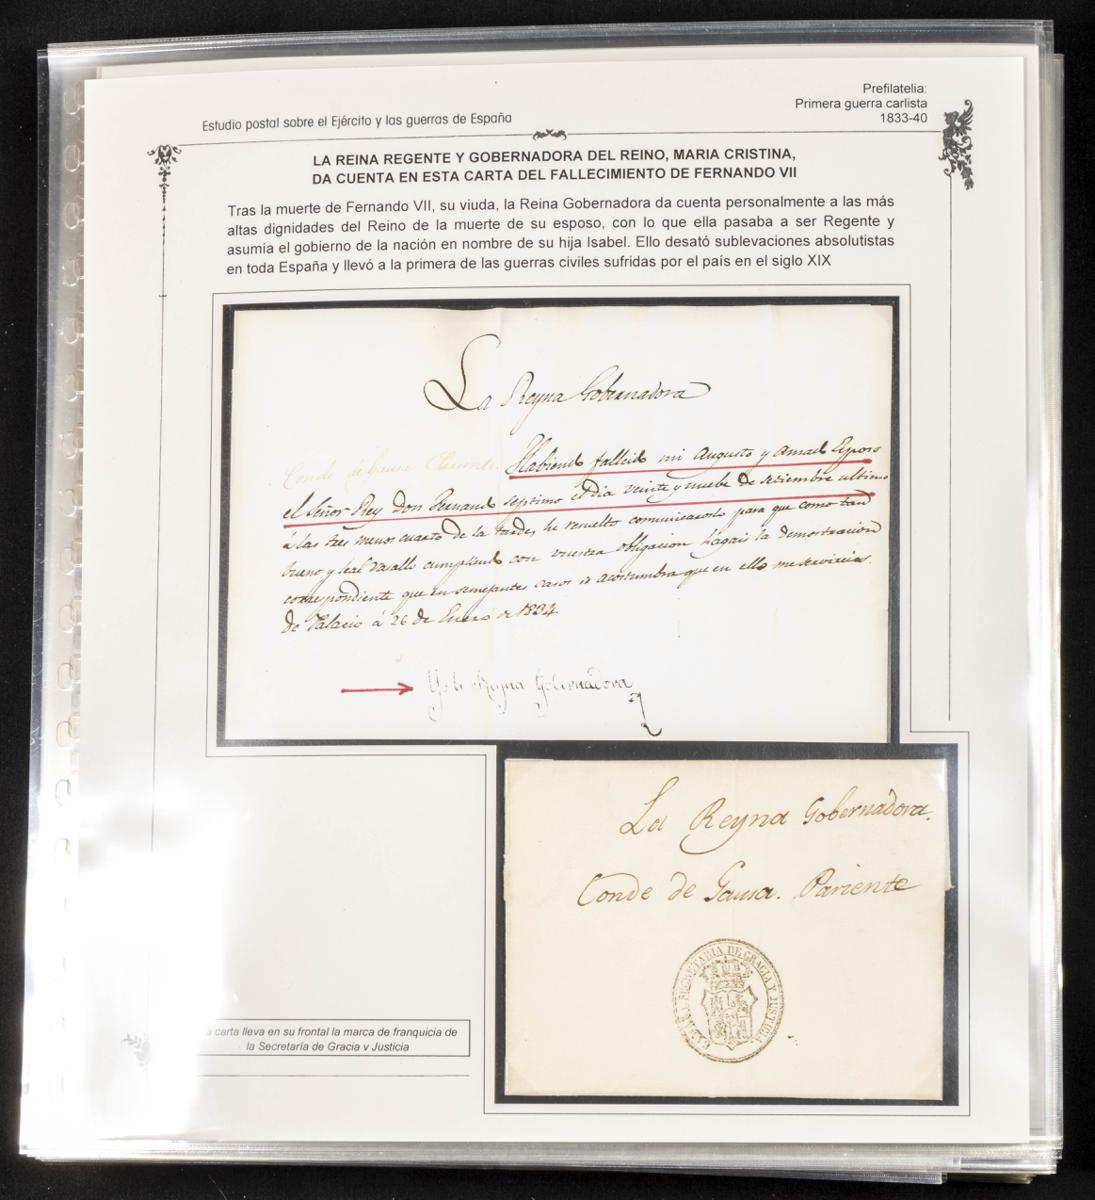 Estudio postal sobre el Ejército y las guerras de España
Prefilatelia:
Primera guerra carlista
1833-40
LA REINA REGENTE Y GOBERNADORA DEL REINO, MARIA CRISTINA,
DA CUENTA EN ESTA CARTA DEL FALLECIMIENTO DE FERNANDO VII
Tras la muerte de Fernando VII, su viuda, la Reina Gobernadora da cuenta personalmente a las más
altas dignidades del Reino de la muerte de su esposo, con lo que ella pasaba a ser Regente y
asumía el gobierno de la nación en nombre de su hija Isabel. Ello desató sublevaciones absolutistas
en toda España y llevó a la primera de las guerras civiles sufridas por el país en el siglo XIX
La Reyna Gobernadora
Conde de Gausa Pariente. Habiendo fallecido mi Augusto y amado Esposo
el Señor Rey don Fernando septimo el dia veinte y nuebe de setiembre ultimo
á las tres menos cuarto de la tarde, he resuelto comunicaroslo para que como tan
bueno y leal vasallo cumpliendo con vuestra obligacion hagais la demostracion
correspondiente que en semejantes casos se acostumbra que en ello me servireis.
de Palacio á 26 de Enero de 1834.
Yo la Reyna Gobernadora
La Reyna Gobernadora.
Conde de Gausa. Pariente
SECRETARIA DE GRACIA Y JUSTICIA
carta lleva en su frontal la marca de franquicia de
la Secretaría de Gracia y Justicia